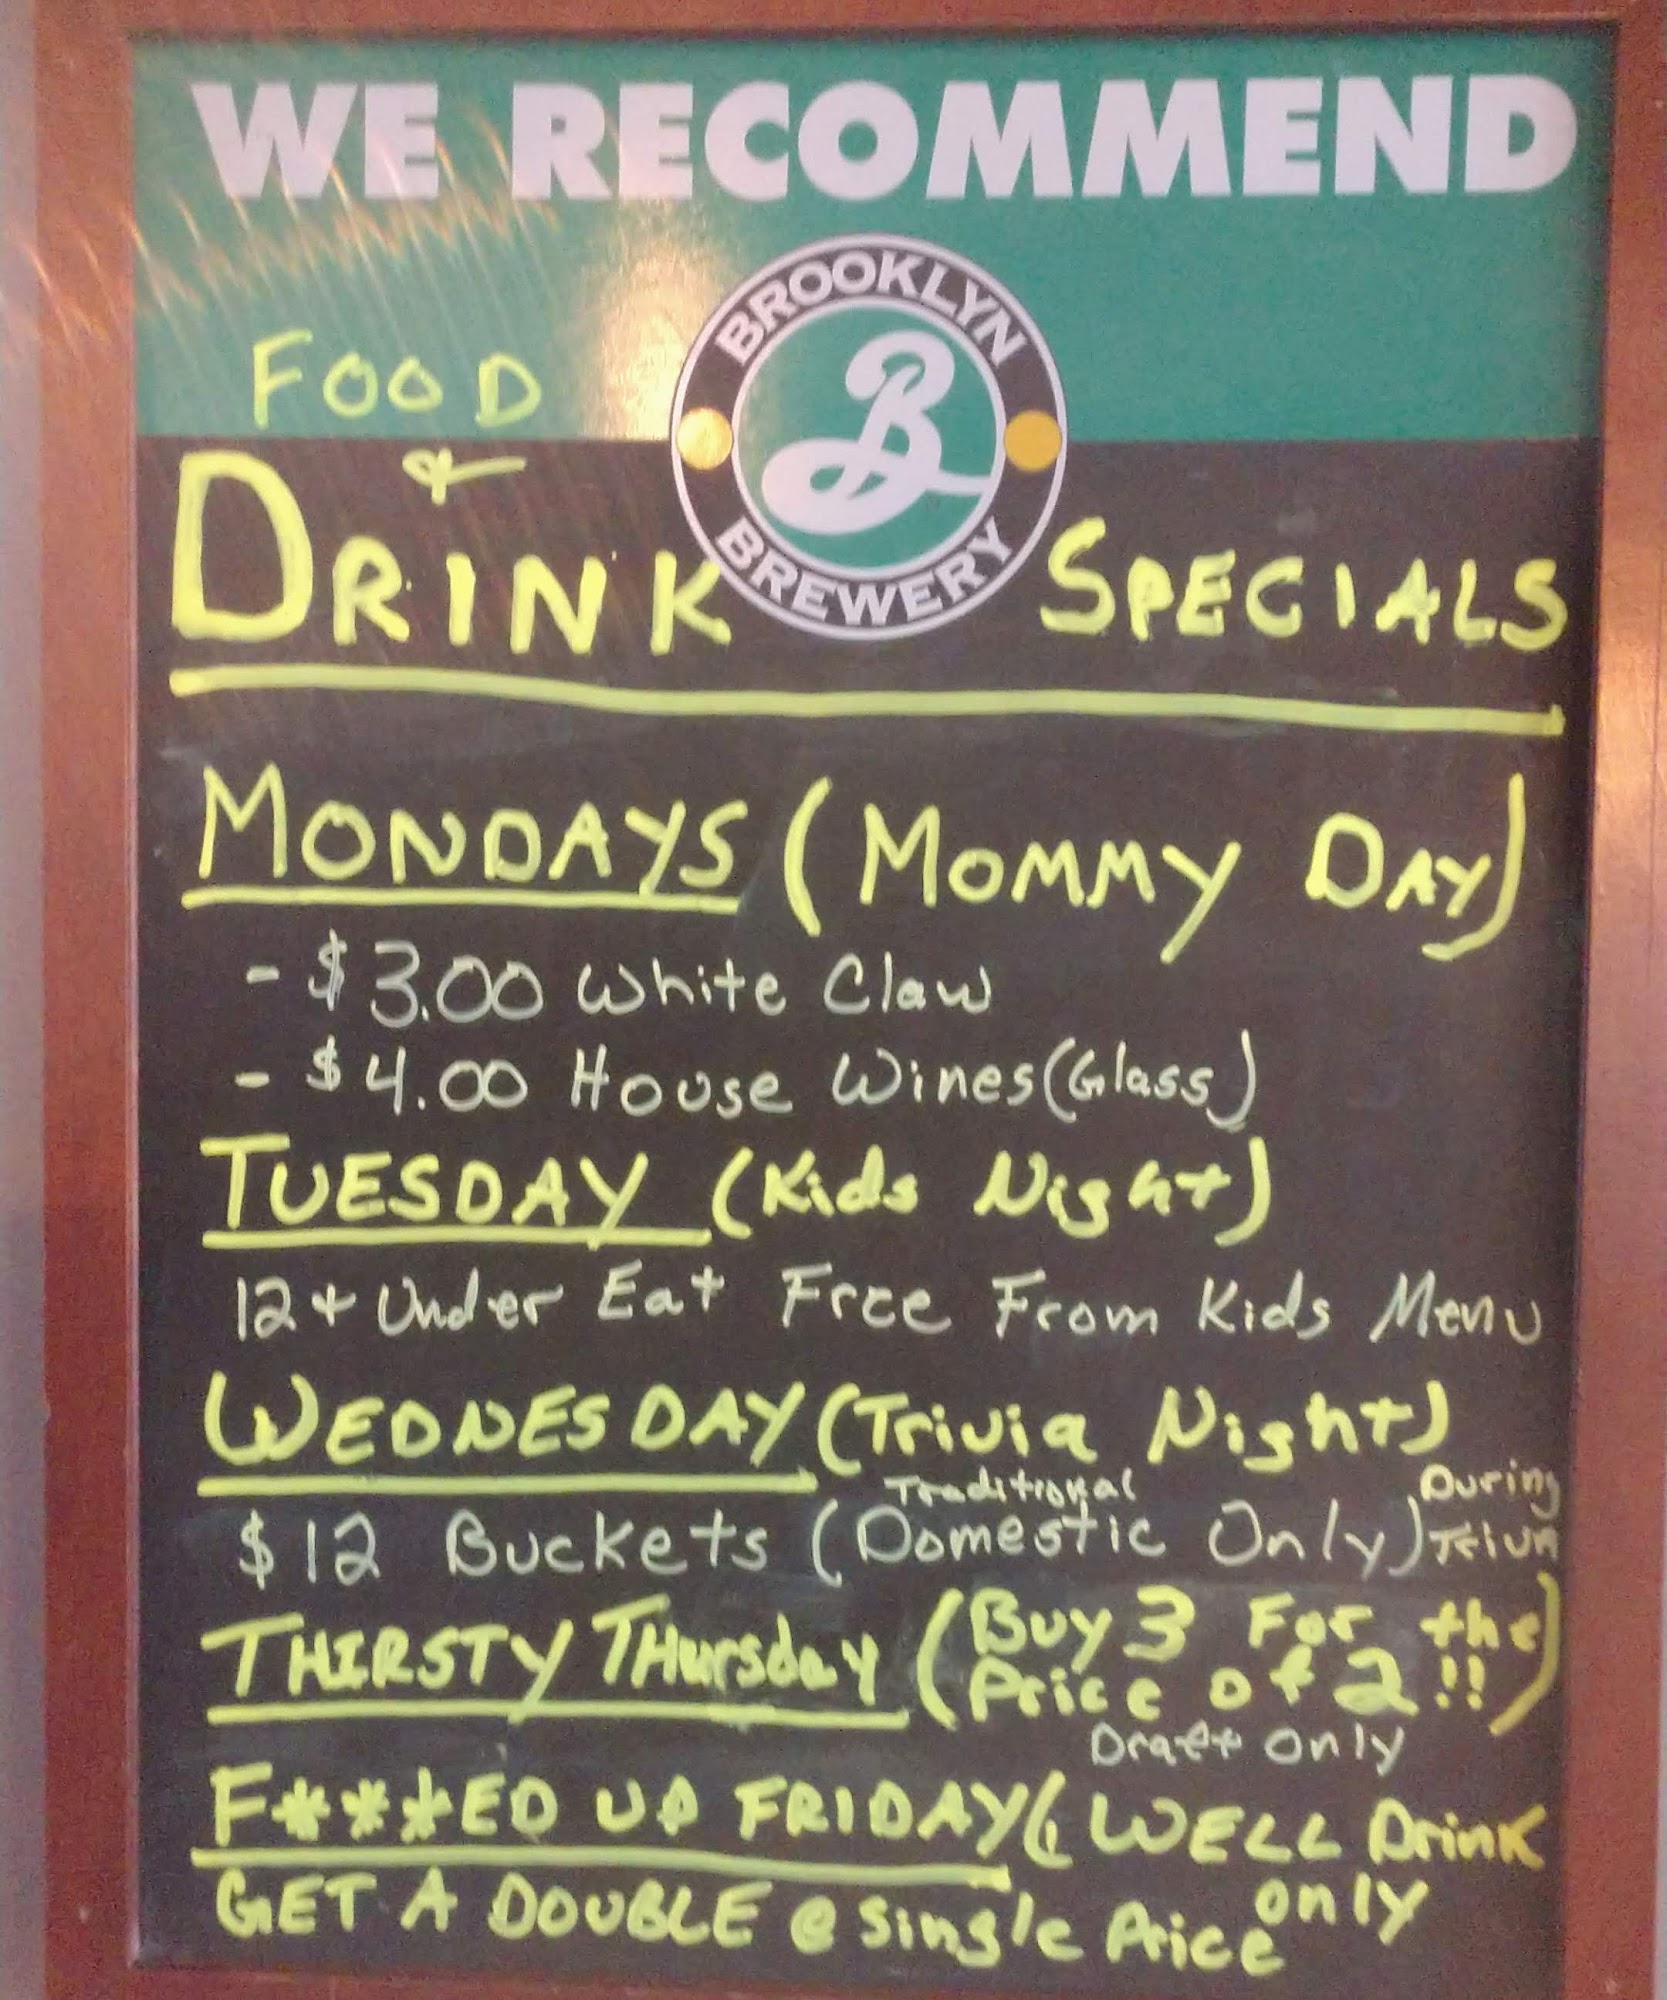 WE RECOMMEND
BROOKLYN
B
BREWERY
FOOD
&
DRINK SPECIALS
MONDAYS (MOMMY DAY)
- $3.00 White Claw
- $4.00 House Wines (Glass)
TUESDAY (Kids Night)
12 + Under Eat Free From Kids Menu
WEDNESDAY (Trivia Night)
Traditional During
$12 Buckets (Domestic Only) Trivia
THIRSTY THursday (Buy 3 For the
Price of 2!!)
Draft only
F***ED UP FRIDAY ( WELL Drink
only
GET A DOUBLE @ Single Price